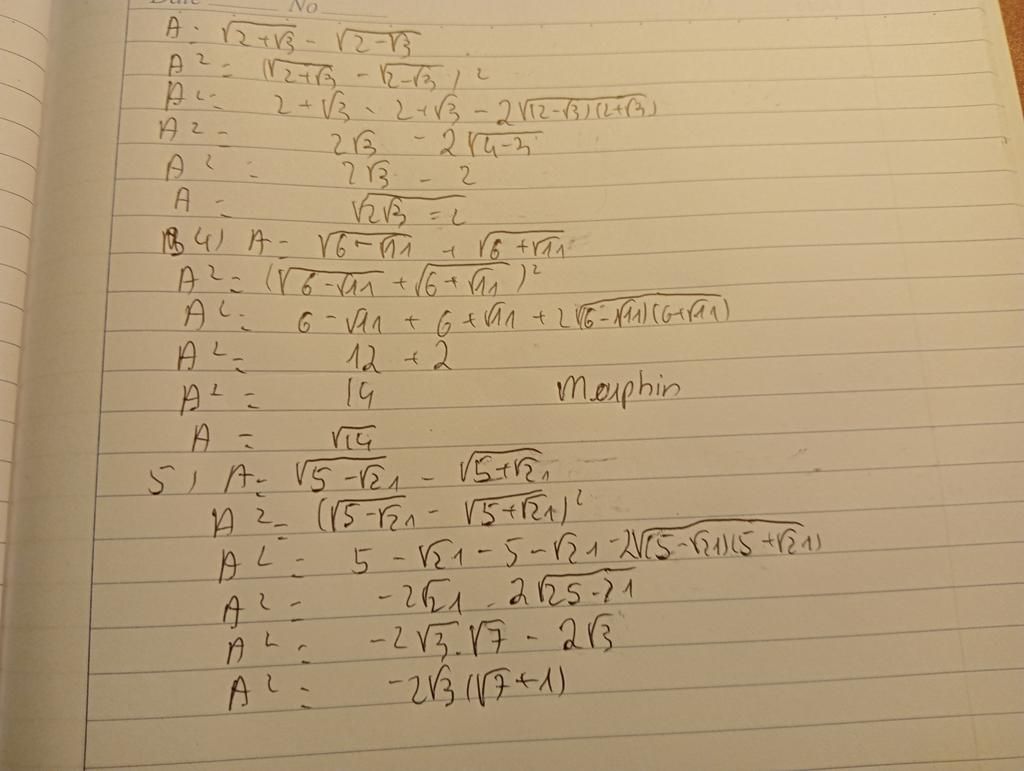 Date No
A = √(2+√3) - √(2-√3)
A² = (√(2+√3) - √(2-√3))²
A² = 2 + √3 - 2 + √3 - 2√((2-√3)(2+√3))
A² = 2√3 - 2√(4-3)
A² = 2√3 - 2
A = √(2√3 = 2)
4) A = √(6-√11) + √(6+√11)
A² = (√(6-√11) + √(6+√11))²
A² = 6 - √11 + 6 + √11 + 2√((6-√11)(6+√11))
A² = 12 + 2
A² = 14
Morphin
A = √14
5) A = √(5-√21) - √(5+√21)
A² = (√(5-√21) - √(5+√21))²
A² = 5 - √21 - 5 - √21 - 2√((5-√21)(5+√21))
A² = -2√21 - 2√(25-21)
A² = -2√3.√7 - 2√3
A² = -2√3(√7+1)